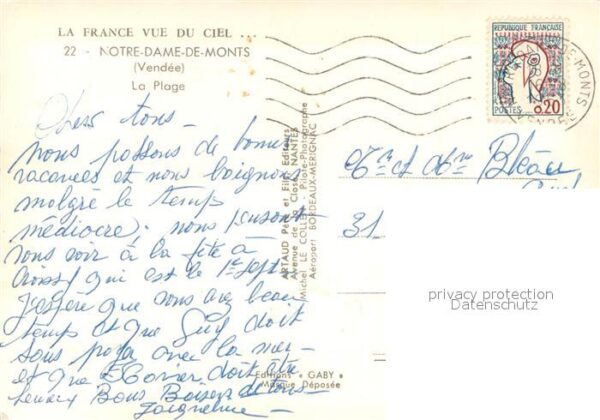 LA FRANCE VUE DU CIEL ...
22 - NOTRE-DAME-DE-MONTS
(Vendée)
La Plage
Chers tous -
nous passons de bonnes
vacances et nous baignons
malgré le temps
médiocre; nous pensons
vous voir à la fête à
Croissy qui est le 1er sept
J'espère que vous avez beau
temps et que Guy doit
sous avec la mer -
et que doit être
heureux Bons Baisers de tous -
Jacqueline -
ARTAUD Père et Fils Editeurs
Avenue de la Close, NANTES
Michel LE COLLEN - Pilote-Photographe
Aéroport BORDEAUX-MERIGNAC
Editions "GABY"
Marque Déposée
REPUBLIQUE FRANÇAISE
POSTES 0,20
DE-MONTS
Mr et Mme
31
privacy protection
Datenschutz